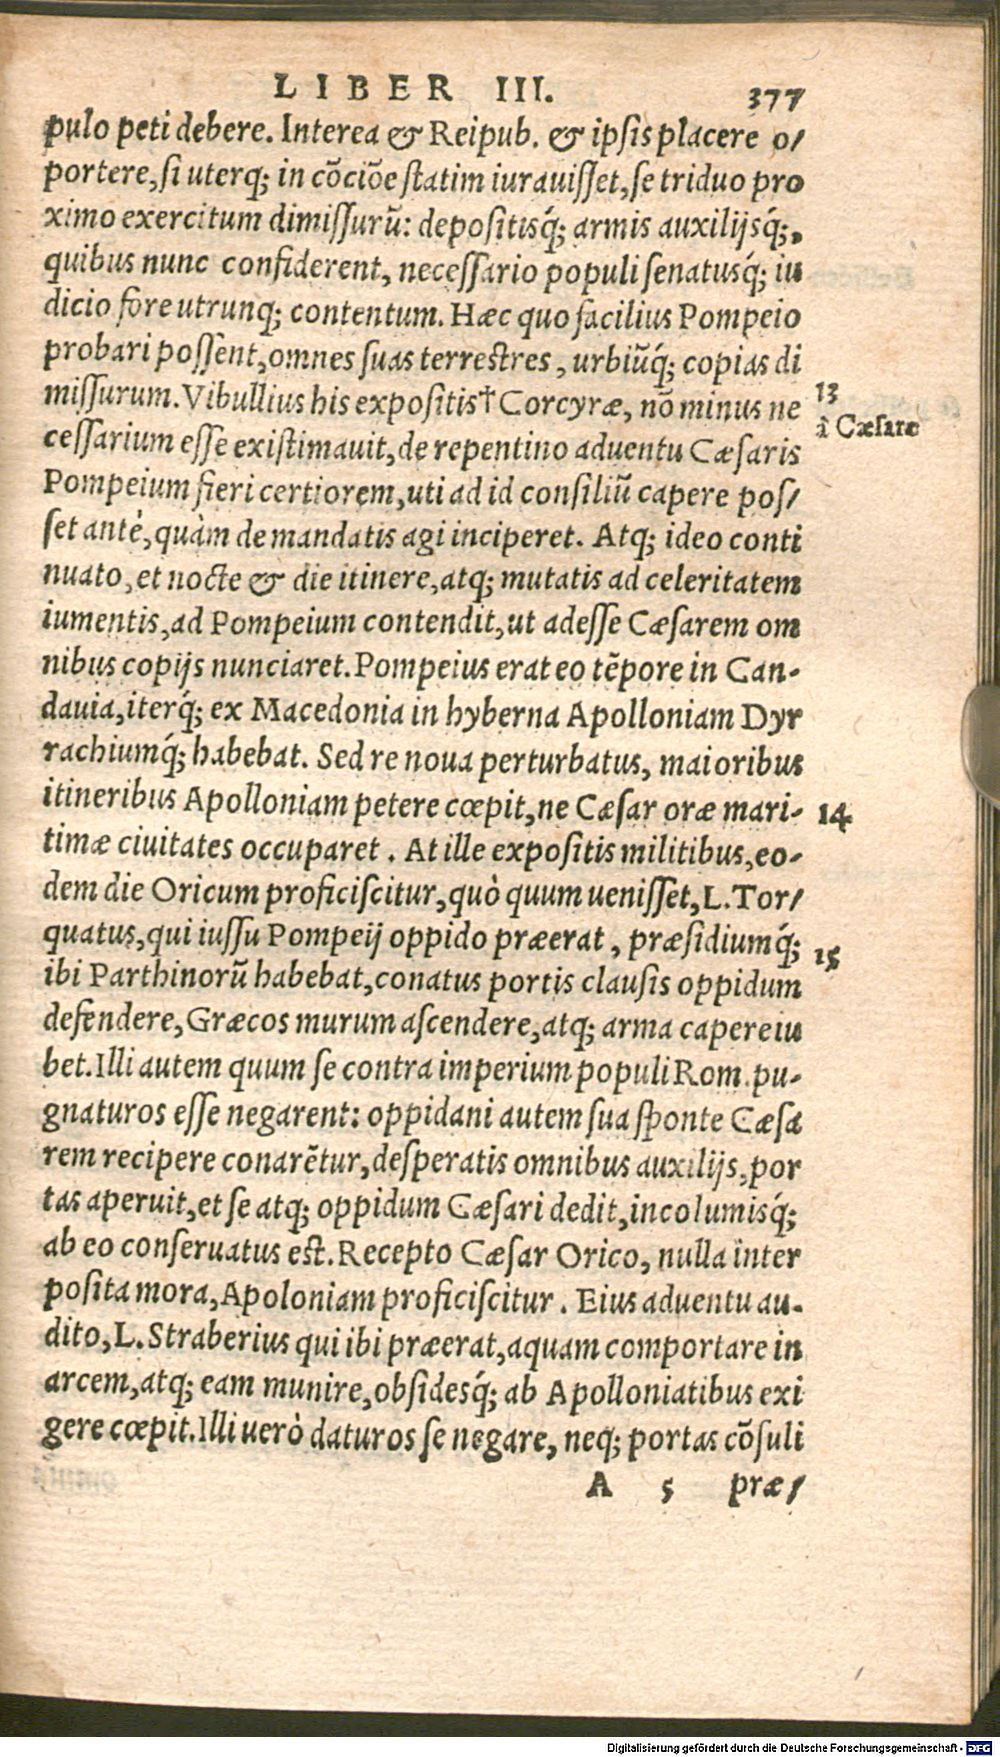 LIBER III. 377
pulo peti debere. Interea & Reipub. & ipſis placere o/
portere, ſi uterq; in cōciōe ſtatim iurauiſſet, ſe triduo pro
ximo exercitum dimiſſurũ: depoſitisq́; armis auxilijsq́;,
quibus nunc confiderent, neceſſario populi ſenatusq́; iu
dicio fore utrunq; contentum. Hæc quo facilius Pompeio
probari poſſent, omnes ſuas terreſtres, urbiũq́; copias di
miſſurum. Vibullius his expoſitis† Corcyræ, nō minus ne
13
â Cæſare
ceſſarium eſſe exiſtimauit, de repentino aduentu Cæſaris
Pompeium fieri certiorem, uti ad id conſiliũ capere poſ/
ſet antè, quàm de mandatis agi inciperet. Atq; ideo conti
nuato, et nocte & die itinere, atq; mutatis ad celeritatem
iumentis, ad Pompeium contendit, ut adeſſe Cæſarem om
nibus copijs nunciaret. Pompeius erat eo tẽpore in Can-
dauia, iterq́; ex Macedonia in hyberna Apolloniam Dyr
rachiumq́; habebat. Sed re noua perturbatus, maioribus
itineribus Apolloniam petere cœpit, ne Cæſar oræ mari-
14
timæ ciuitates occuparet. At ille expoſitis militibus, eo-
dem die Oricum proficiſcitur, quò quum ueniſſet, L. Tor/
quatus, qui iuſſu Pompeij oppido præerat, præſidiumq́;
15
ibi Parthinorũ habebat, conatus portis clauſis oppidum
defendere, Græcos murum aſcendere, atq; arma capere iu
bet. Illi autem quum ſe contra imperium populi Rom. pu-
gnaturos eſſe negarent: oppidani autem ſua ſponte Cæſa
rem recipere conarẽtur, deſperatis omnibus auxilijs, por
tas aperuit, et ſe atq; oppidum Cæſari dedit, incolumisq́;
ab eo conſeruatus eſt. Recepto Cæſar Orico, nulla inter
poſita mora, Apoloniam proficiſcitur. Eius aduentu au-
dito, L. Straberius qui ibi præerat, aquam comportare in
arcem, atq; eam munire, obſidesq́; ab Apolloniatibus exi
gere cœpit. Illi uerò daturos ſe negare, neq; portas cōſuli
A 5 præ/
Digitalisierung gefördert durch die Deutsche Forschungsgemeinschaft - DFG